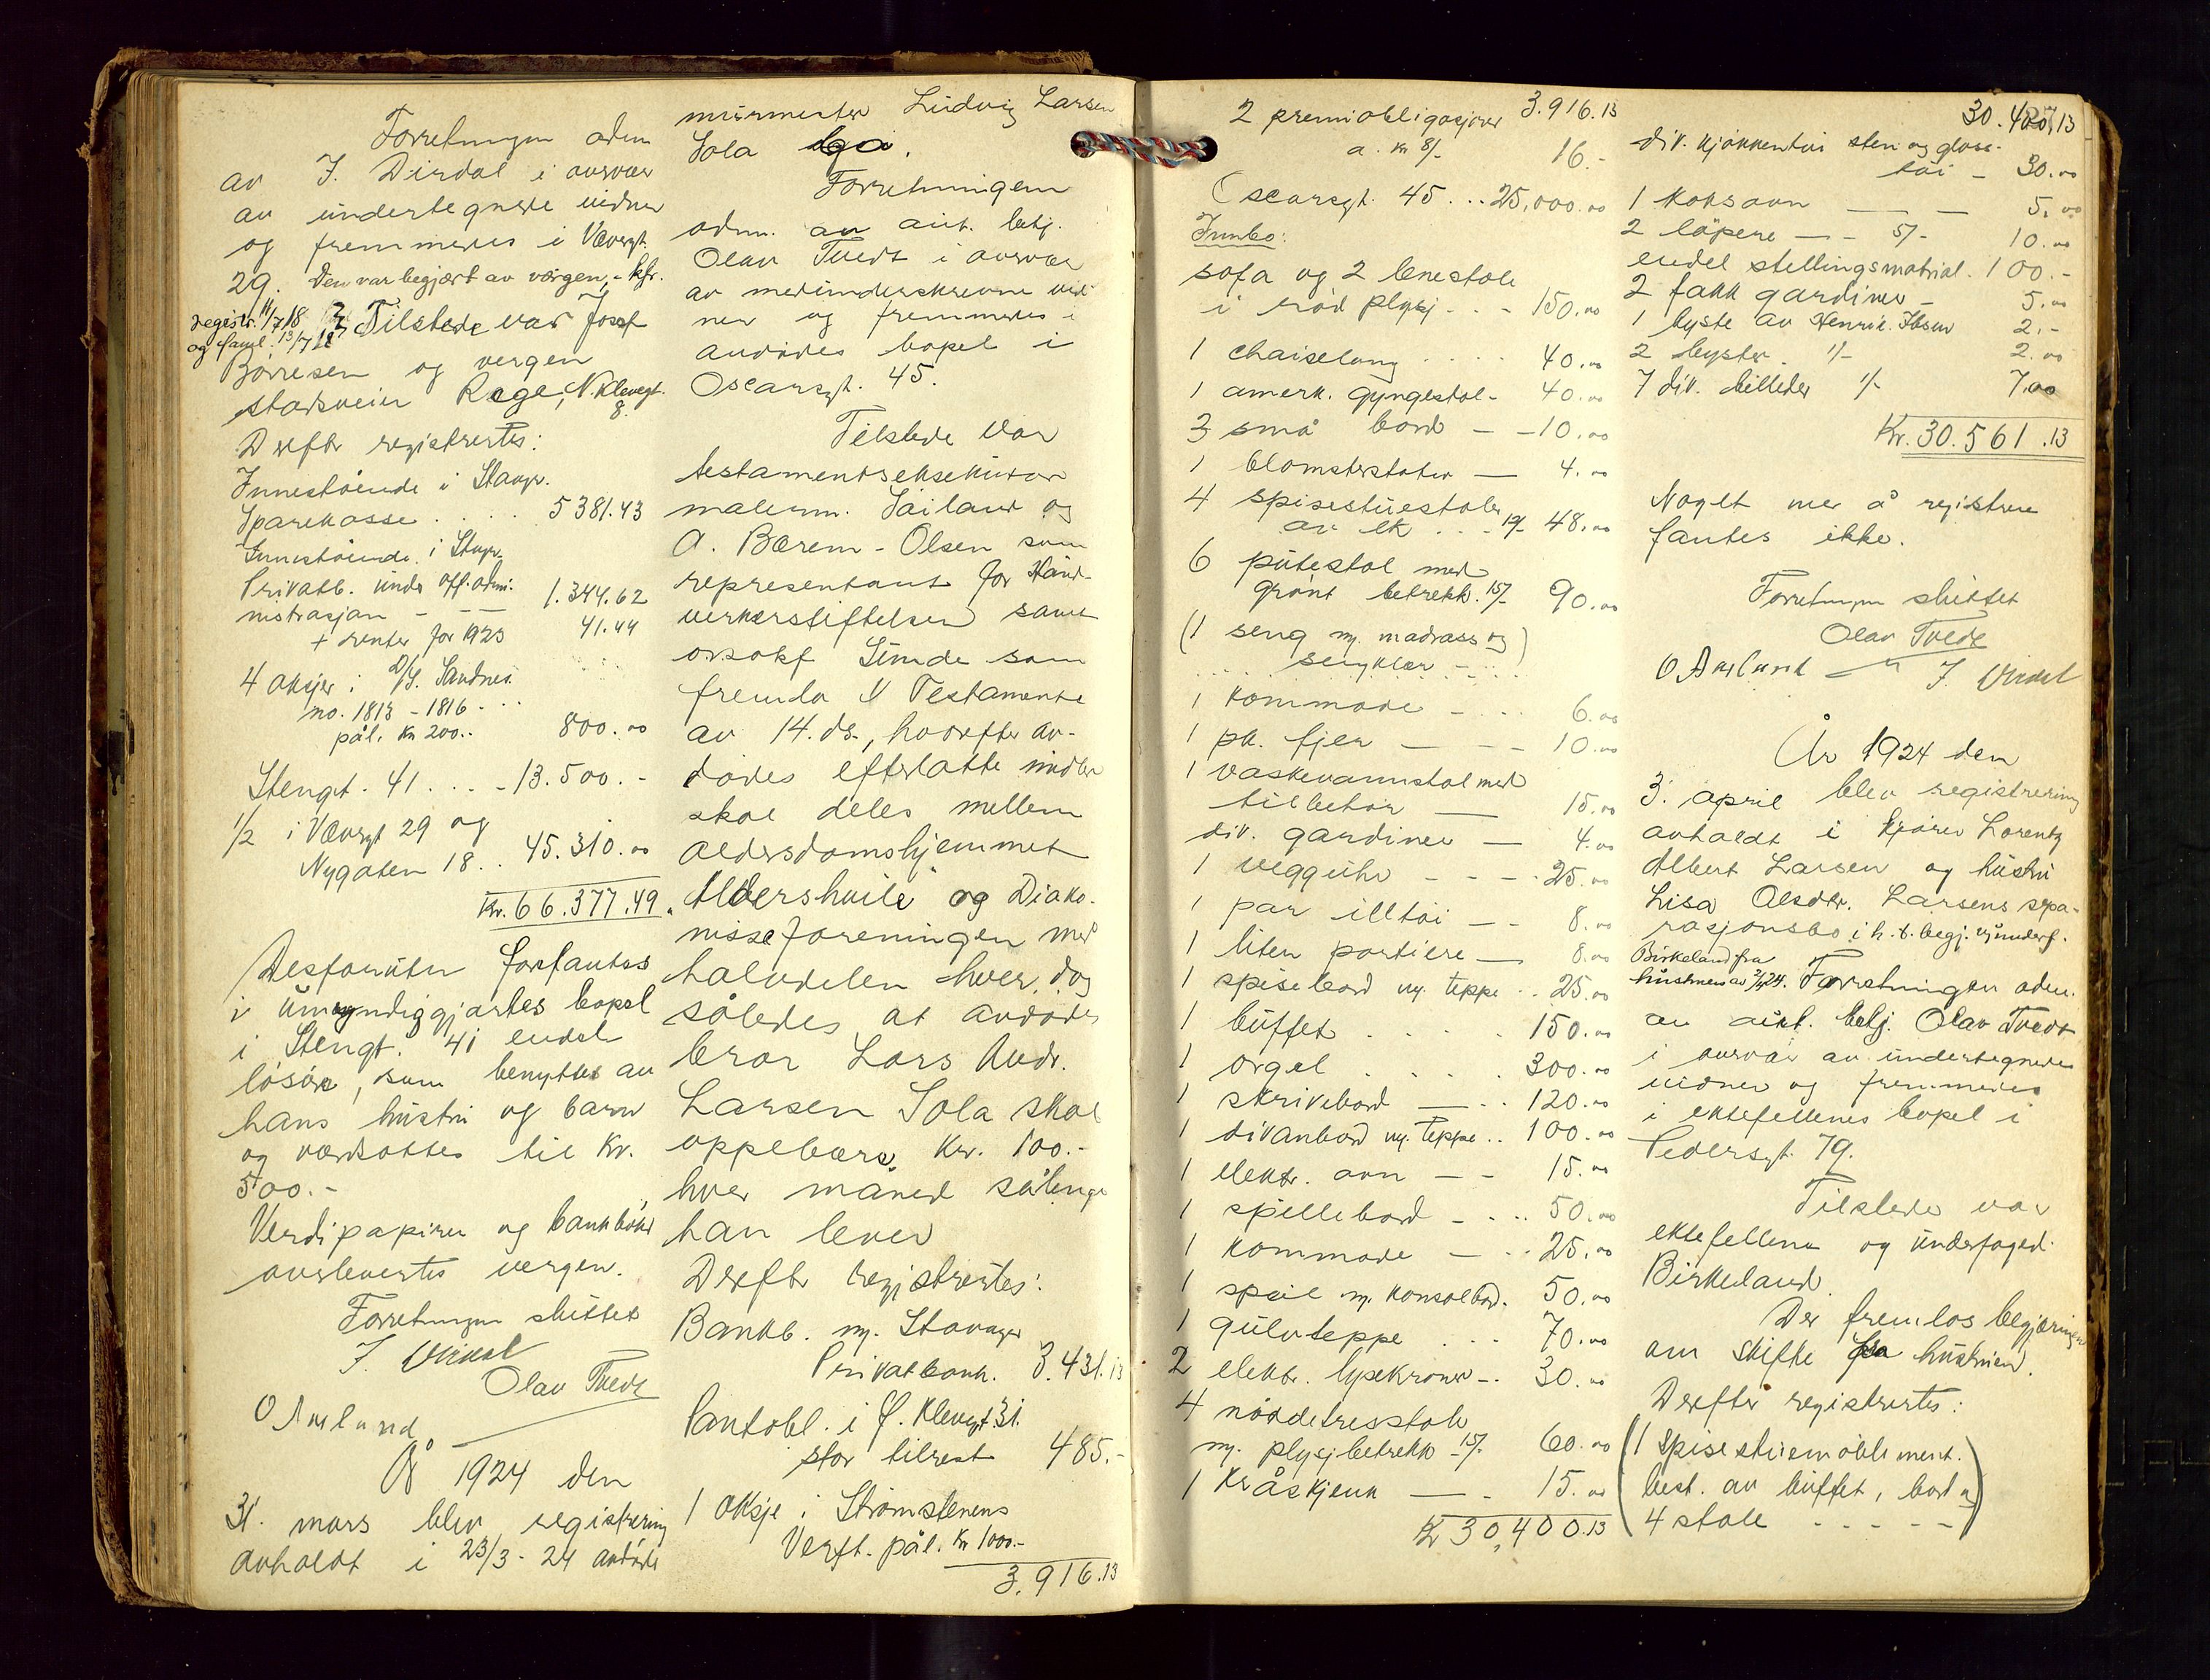 Forretningen adm.
av J. Dirdal i overvær
av undertegnede vidner
og fremmedes i Væversgt.
29. Den var begjært av værgen, - kfr.
registr. 11/7 18
og saml. 13/7 18
Tilstede var Josef
Børresen og vergen
stadsveier Rage, N. Klevegt.
8.
Derefter registrertes:
Innestående i Stavgr.
Sparekasse . . . . 5381.43
Innestående i Stvgr.
Privatb. under off. admi-
nistrasjon - — — 1.344.62
+ renter for 1923 41.44
4 aksjer i D/S. Sandnes
no. 1813 - 1816 - . .
pål. kr 200.- 800.00
Stengt. 41 . . . - 13.500.-
1/2 i Væversgt 29 og
Nygaten 18 . . 45.310.00
Kr. 66.377.49.
Desforuten forfantes
i umyndiggjortes bopel
i Stengt. 41 endel
løsøre, som benyttes av
hans hustru og barn
og værdsattes til kr.
500.-
Verdipapirer og bankbøker
avslevertes vergen.
Forretningen sluttet
J. Dirdal
Olav Tvedt
O Aasland
År 1924 den
31. mars blev registrering
avholdt i 23/3 - 24 avdøde
murmester Ludvig Larsen
Sola bo.
Forretningen
adm. av aut. betj.
Olav Tvedt i overvær
av medunderskrevne vid-
ner og fremmedes i
avdødes bopel i
Oscarsgt. 45.
Tilstede var
testamentseksekutor
malerm. Sailand og
A. Bærem - Olsen som
representant for Hånd-
verkerstiftelsen samt
o.r.sakf Sunde som
fremla et Testamente
av 14. ds., hvorefter av-
dødes efterlatte midler
skal deles mellem
aldersdomshjemmet
"Aldershvile" og Diako-
nisseforeningen med
halvdelen hver, dog
således at avdødes
bror Lars Andr.
Larsen Sola skal
oppebære kr. 100.-
hver måned sålenge
han lever
Derefter registrertes:
Bankb. m. Stavanger
Privatbank. 3.431.13
Pantobl. i Ø. Klevegt 31.
står tilrest 485.-
1 aksje i Strømstenens
Verft. pål. kr 1000.-
3.916.13
3.916.13
2 premiobligasjoner
a. kr 8/- 16.-
Oscarsgt. 45 . . . 25,000.00
Innbo:
sofa og 2 lenestole
i rød plysj . . - 150.00
1 chaiselong . . . . 40.00
1 amerk. gyngestol - 40.00
3 små bord — - 10.00
1 blomsterstativ — 4.00
4 spisestuestoler
av ek . . . 12/- 48.00
6 putestol med
grønt betrekk. 15/- 90.00
(1 seng m. madrass og
sengklær - . . )
1 kommode — . . . 6.00
1 pk. fjer — — - 10.00
1 vaskevannstol med
tilbehør — 15.00
div. gardiner — 4.00
1 vegguhr - - - - 25.00
1 par illtøi — — 8.00
1 liten portiere — 8.00
1 spisebord m. teppe . . 25.00
1 buffet . . . . 150.00
1 orgel . . . . . 300.00
1 skrivebord — . . 120.00
1 divanbord m. teppe . . 100.00
1 elektr. ovn — - 15.00
1 spillebord — . . . 50.00
1 kommode — . . 25.00
1 speil m. konsolbord. 50.00
1 gulvteppe . . . 70.00
2 elektr. lysekroner - . 30.00
4 nøddetresstole
m. plysjbetrekk 15/- 60.00
1 kråskjenk — - 15.00
Kr 30,400.13
30.400,13
div. kjøkkentøi sten og glass-
tøi - 30.00
1 koksovn — — 5.00
2 løpere — - 5/- 10.00
endel stellingsmatrial. 100.-
2 fakk gardiner - 5.00
1 byste av Henrik Ibsen 2.-
2 byster. 1/- 2.00
7 div. billeder 1/- 7.00
Kr. 30.561.13
Noget mer å registrere
fantes ikke.
Forretningen sluttet
Olav Tvedt
O Aasland J. Dirdal
År 1924 den
3. april blev registrering
avholdt i kjører Lorentz
Albert Larsen og hustru
Lisa Olsdtr. Larsens sepa-
rasjonsbo i h. t. begj. underf.
Birkeland fra
hustruen av 2/4 24. Forretningen adm.
av aut. betj. Olav Tvedt
i overvær av undertegnede
vidner og fremmedes
i ektefellenes bopel i
Pedersgt. 79.
Tilstede var
ektefellene og underfoged
Birkeland.
Der fremlas begjæringen
om skifte fra hustruen.
Derefter registrertes:
(1 spisestuemøblement.
best. av buffet, bord og
4 stole - - - - -)